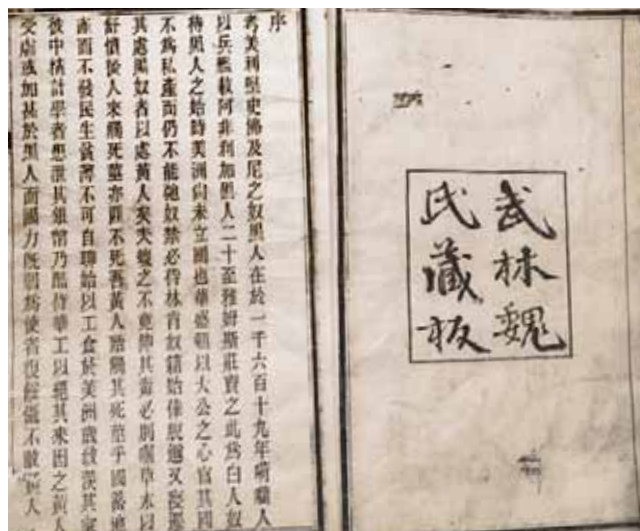 武林魏
氏藏板
序
考美利堅史佛及尼之奴黑人在於一千六百十九年荷蘭人
以兵艦載阿非利加黑人二十至雅姆斯莊賣之此為白人奴
待黑人之始時美洲尚未立國也華盛頓以大公之心官其國
不為私產而仍不能弛奴禁必待林肯奴籍始倖脫邇又寖遷
其處黑奴者以處黃人矣夫蝮之不竟伸其毒必別嚙草木以
舒憤後人來觸死莖亦靡不死吾黃人殆觸其死莖乎國蓄地
產而不發民生貧薄不可自聊始以工食於美洲歲致羨其家
彼中精計學者患泄其銀幣乃酷待華工以絕其來因之黃人
受虐或加甚於黑人而國力既弱為使者復餒懾不敢